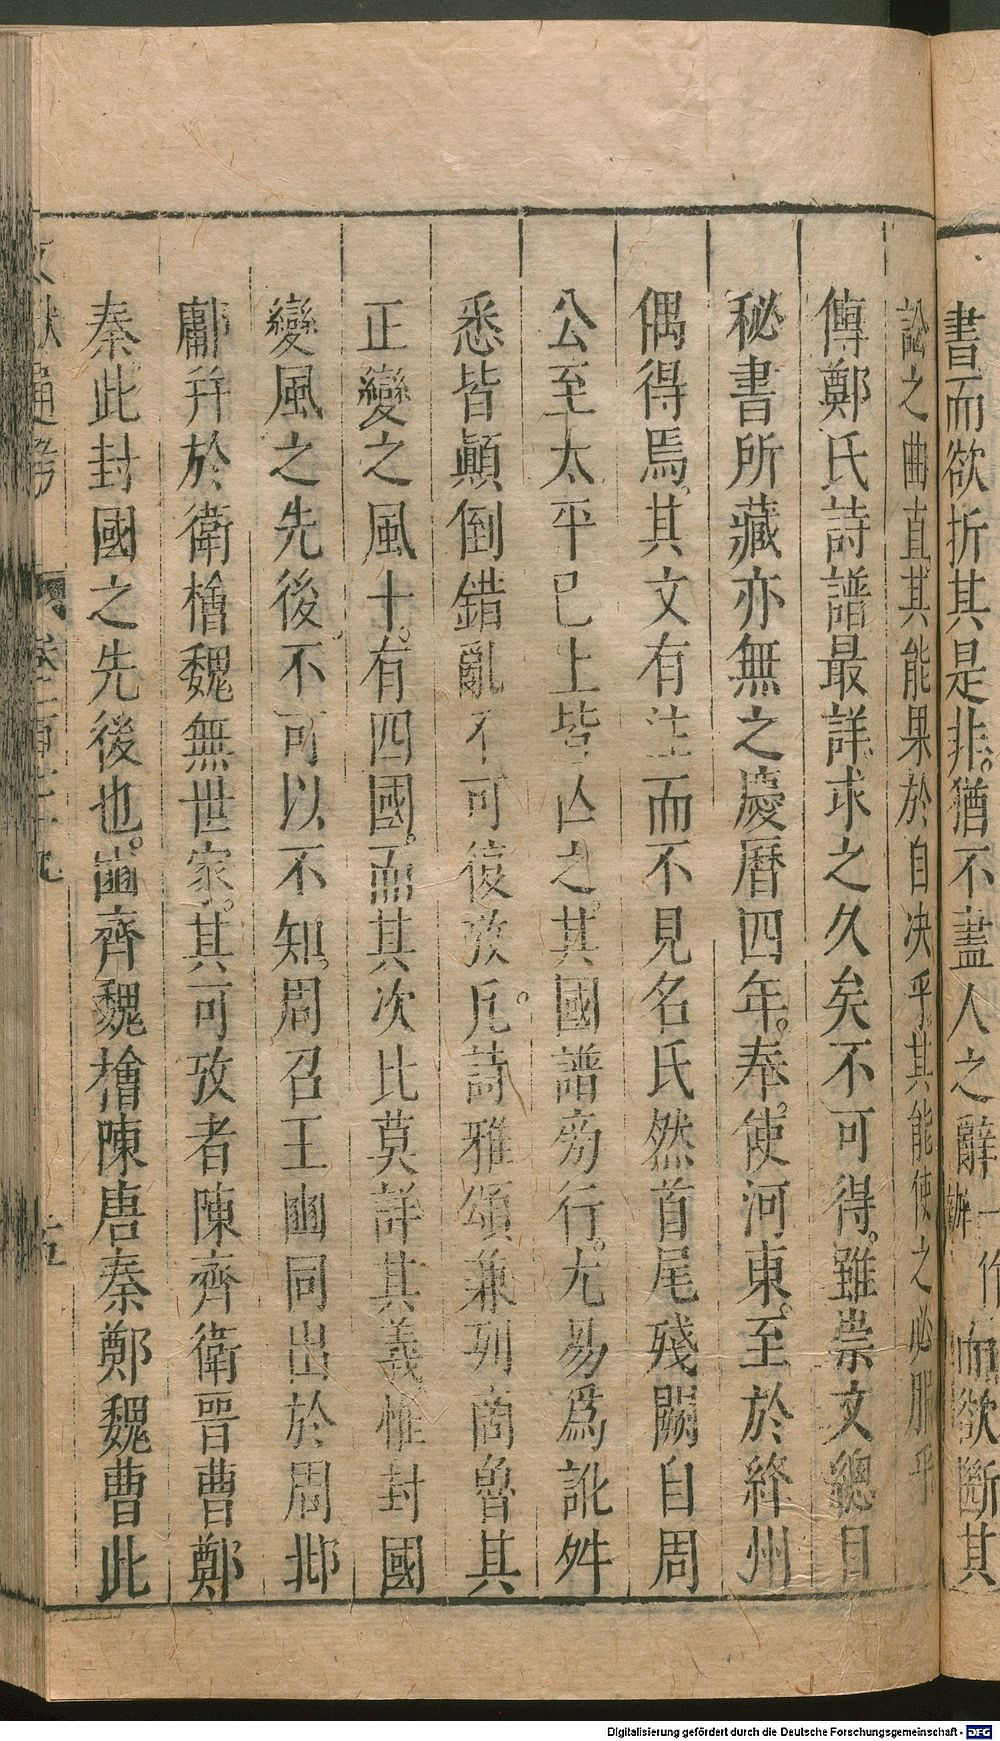 書而欲折其是非。猶不盡人之辭辦一作而欲斷其
訟之曲直其能果於自决乎其能使之必服乎
傳鄭氏詩譜最詳求之久矣不可得。雖崇文緫目
秘書所藏亦無之慶曆四年。奉使河東。至於絳州
偶得焉。其文有注而不見名氏然首尾殘闕自周
公至太平已上皆亡之。其國譜旁行。尤易爲訛舛
悉皆顛倒錯亂不可復攷。凡詩雅頌兼列商魯其
正變之風十。有四國。而其次比莫詳其義惟封國
變風之先後不可以不知。周召王豳同出於周邶
鄘并於衛檜魏無世家。其可攷者陳齊衛晉曹鄭
秦此封國之先後也。豳齊魏檜陳唐秦鄭魏曹此
文獻通考
Digitalisierung gefördert durch die Deutsche Forschungsgemeinschaft - DFG